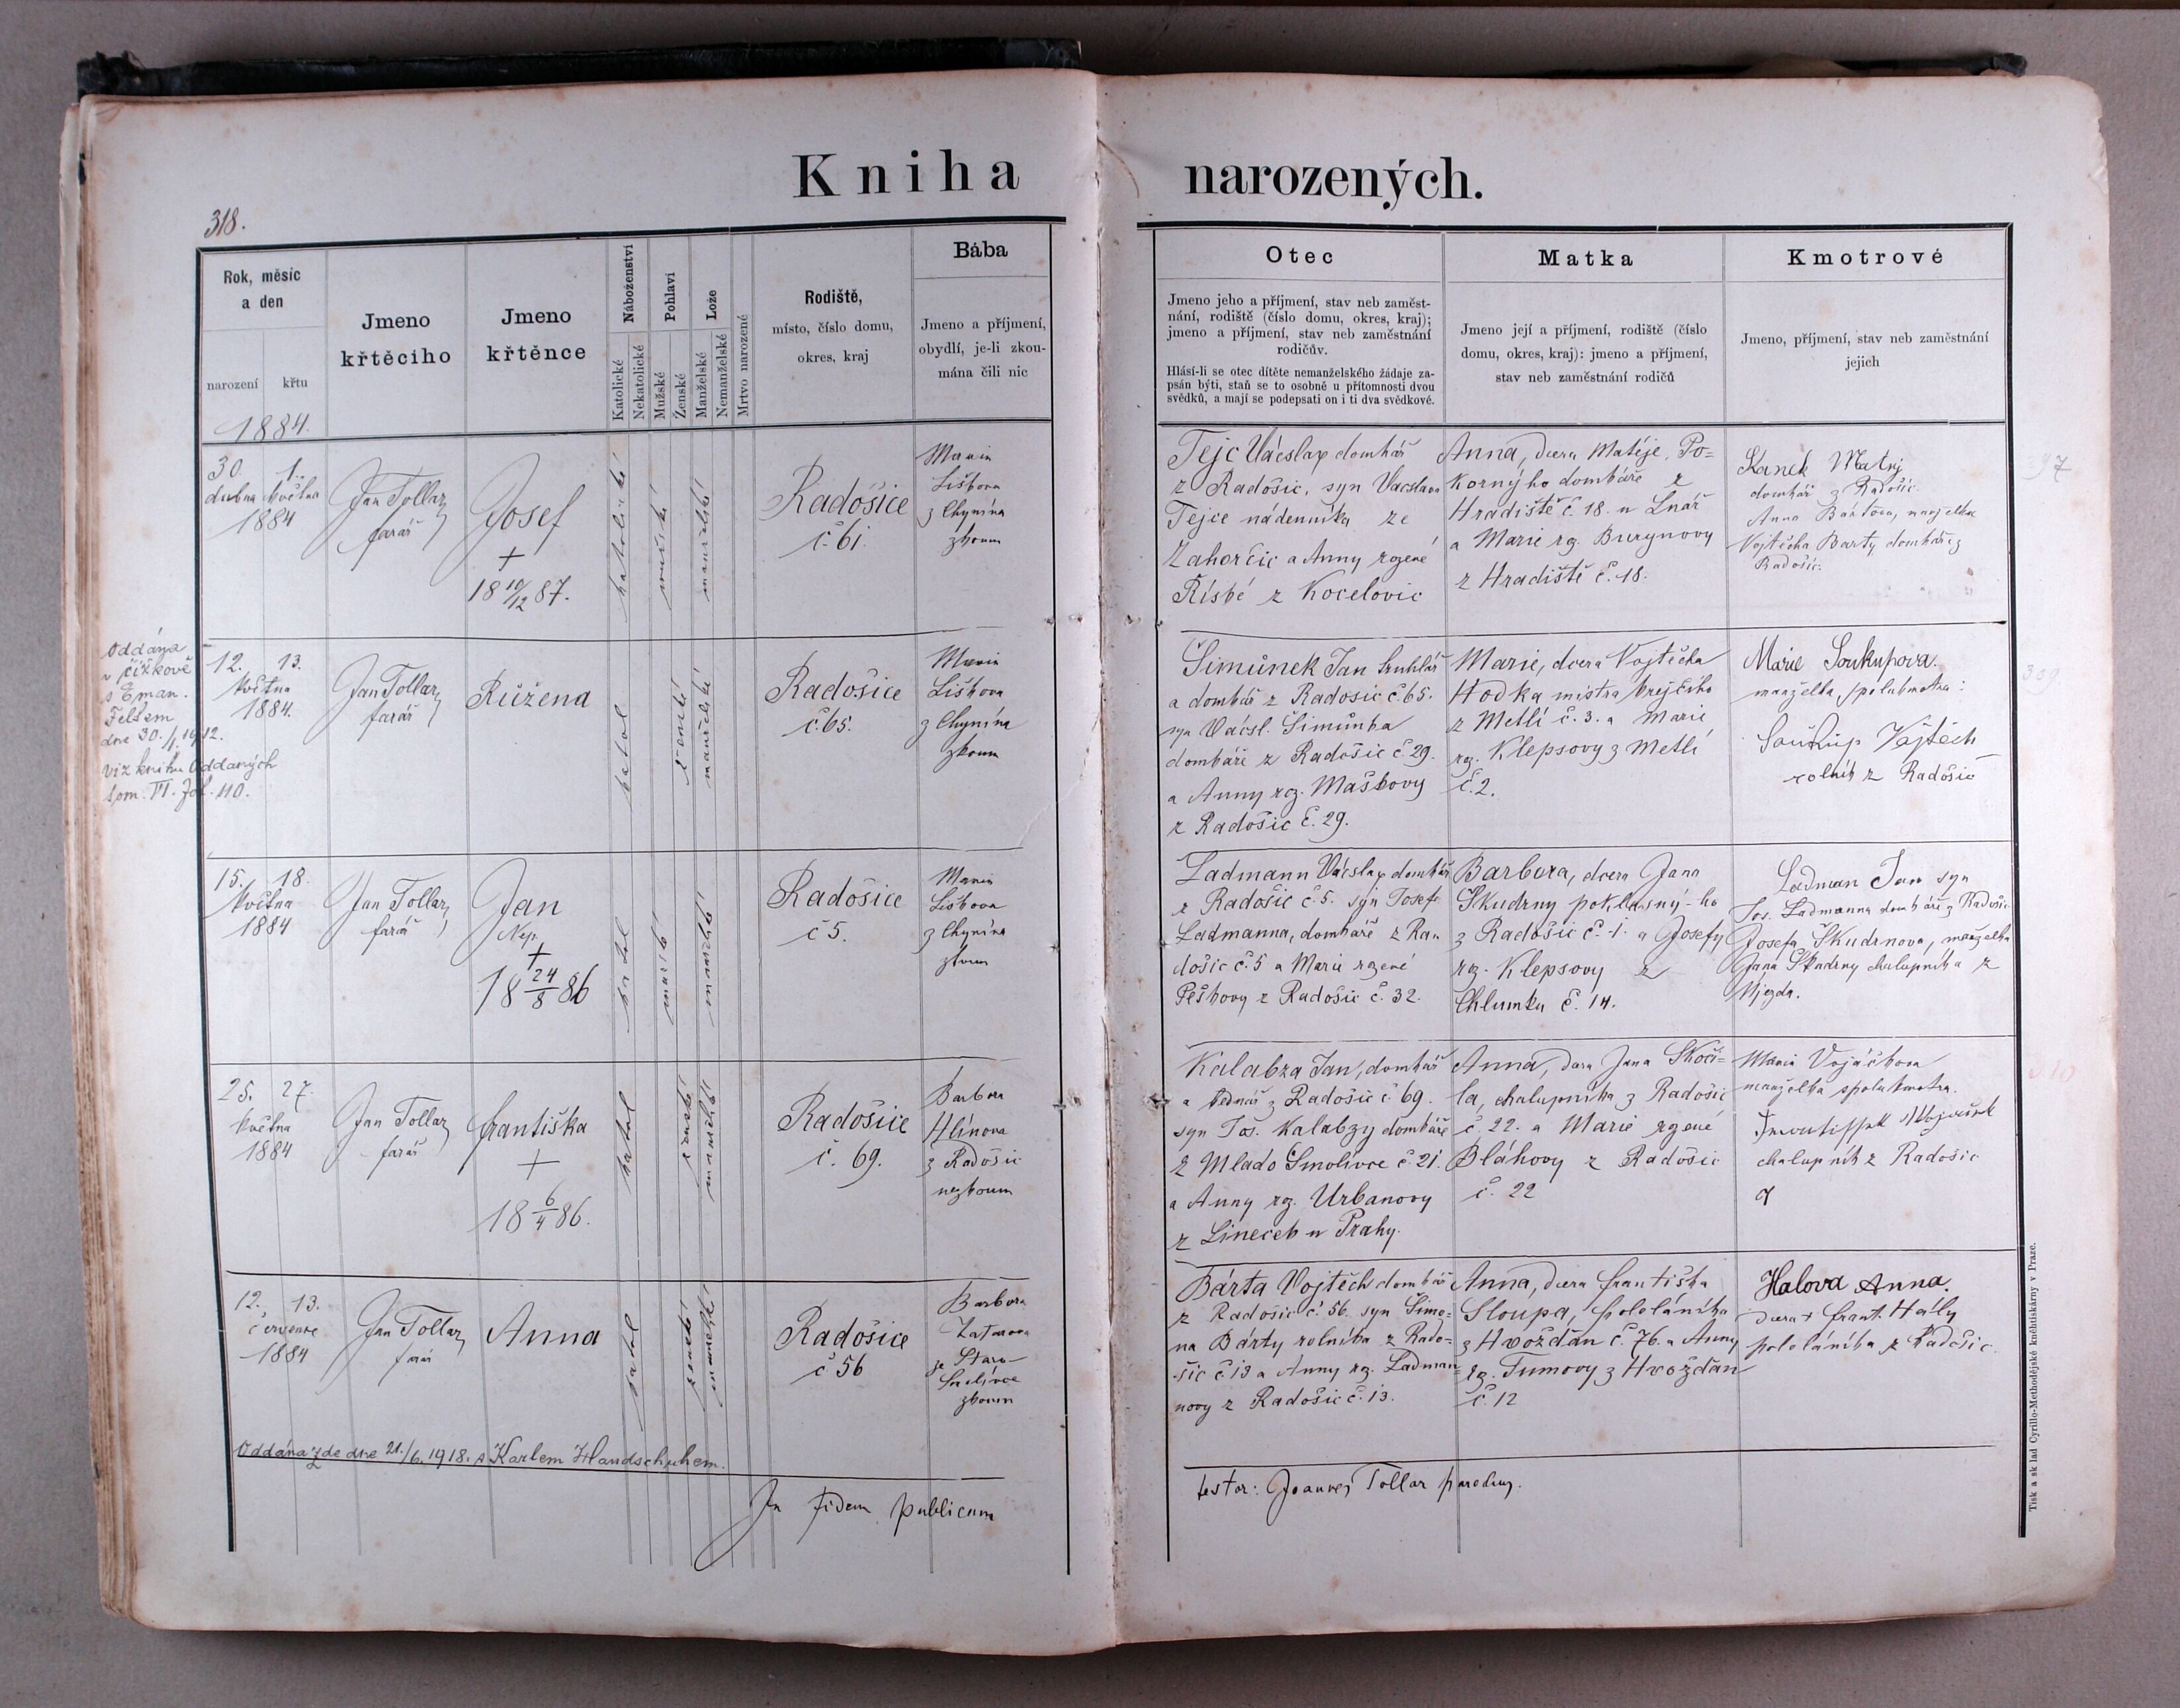 Kniha narozených.
318.
Rok, měsíc
a den
narození křtu
1884.
Jmeno
křtěcího
Jmeno
křtěnce
Náboženství
Katolické
Nekatolické
Pohlaví
Mužské
Ženské
Lože
Manželské
Nemanželské
Mrtvo narozené
Rodiště,
místo, číslo domu,
okres, kraj
Bába
Jmeno a příjmení,
obydlí, je-li zkou-
mána čili nic
Otec
Jmeno jeho a příjmení, stav neb zaměst-
nání, rodiště (číslo domu, okres, kraj);
jmeno a příjmení, stav neb zaměstnání
rodičův.
Hlásí-li se otec dítěte nemanželského žádaje za-
psán býti, staň se to osobně u přítomnosti dvou
svědků, a mají se podepsati on i ti dva svědkové.
Matka
Jmeno její a příjmení, rodiště (číslo
domu, okres, kraj): jmeno a příjmení,
stav neb zaměstnání rodičů
Kmotrové
Jmeno, příjmení, stav neb zaměstnání
jejich
30. 1.
dubna května
1884
Jan Tollar
farář
Josef
+
18 10/12 87.
katolické
mužské
manželské
Radošice
č. 61.
Marie
Lišková
z Chynína
zkoum
Tejc Václav domkář
z Radošic, syn Vacslava
Tejce nádenníka ze
Zahorčic a Anny rozené
Říské z Kocelovic
Anna, dcera Matěje Po=
korného domkáře z
Hradiště č. 18. u Lnář
a Marie rz. Burynovy
z Hradiště č. 18.
Kanek Matěj
domkář z Radošic
Anna Bártova, manželka
Vojtěcha Barty domkáře z
Radošic.
Oddána
v Čížkově
s Eman.
Feltem
dne 30./1. 1912.
viz knihu Oddaných
tom. VI. fol. 110.
12. 13.
května
1884.
Jan Tollar
farář
Růžena
katol
ženské
manželské
Radošice
č. 65.
Marie
Lišková
z Chynína
zkoum
Šimůnek Jan truhlář
a domkář z Radošic č. 65.
syn Václ. Šimůnka
domkáře z Radošic č. 29.
a Anny roz. Maškovy
z Radošic č. 29.
Marie, dcera Vojtěcha
Hodka mistra krejčího
z Metlí č. 3. a Marie
rz. Klepsovy z Metlí
č. 2.
Marie Soukupova.
manželka, spolukmotra:
Soukup Vojtěch
rolník z Radošic
15. 18.
května
1884
Jan Tollar
farář
Jan
Nep.
+
18 24/8 86
katol
mužské
manželské
Radošice
č 5.
Marie
Lišková
z Chynína
zkoum
Ladmann Václav domkář
z Radošic č. 5. syn Josefa
Ladmanna, domkáře z Ra-
došic č. 5 a Marie rozené
Peškovy z Radošic č. 32.
Barbora, dcera Jana
Skudrny poklasný-ho
z Radošic č. 1. a Josefy
rz. Klepsovy z
Chlumku č. 14.
Ladman Jan syn
Jos. Ladmanna domkáře z Radošic
Josefa Skudrnova, manželka
Jana Skudrny chalupníka z
Újezda.
25. 27.
května
1884
Jan Tollar
farář
Františka
+
18 6/4 86.
katol
ženské
manželské
Radošice
č. 69.
Barbora
Hlínova
z Radošic
nezkoum
Kalabza Jan, domkář
a z Radošic č. 69.
syn Jos. Kalabzy domkáře
z Mlado Smolivce č. 21.
a Anny rz. Urbanovy
z Lineček u Prahy.
Anna, dcera Jana Skoči=
la, chalupníka z Radošic
č. 22. a Marie rozené
Bláhovy z Radošic
č. 22
Marie Vojáčkova
manželka spolukmotra.
Frantissek Wojaček
chalupník z Radošic
7
12. 13.
července
1884
Jan Tollar
farář
Anna
katol
ženské
manželské
Radošice
č 56
Barbora
ze Staro-
Smolivce
zkoum
Bárta Vojtěch domkář
z Radošic č. 56. syn Šimo=
na Bárty rolníka z Rado=
šic č 13 a Anny rz. Ladman=
novy z Radošic č. 13.
Anna, dcera Františka
Sloupa, pololáníka
z Hvožďan č. 76. a Anny
rz. Tumovy z Hvožďan
č. 12
Halova Anna.
dcera + Frant. Hály
pololáníka z Radošic.
Oddána zde dne 21./6. 1918. s Karlem Handschuhem.
In fidem publicam
testor: Joannes Tollar parochus.
Tisk a sklad Cyrillo-Methodějské knihtiskárny v Praze.